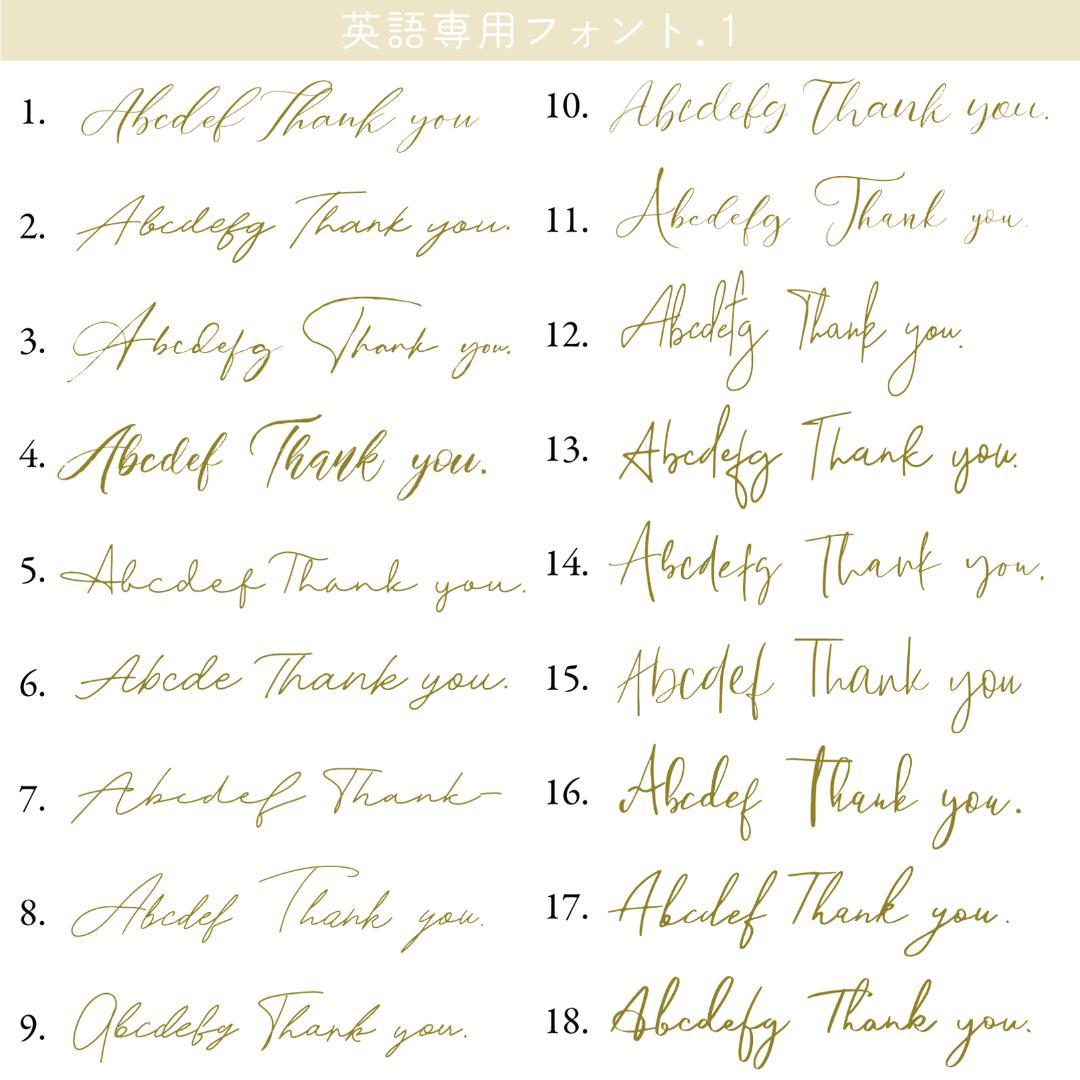 英語専用フォント.1
1. Abcdef Thank you
2. Abcdefg Thank you.
3. Abcdefg Thank you.
4. Abcdef Thank you.
5. Abcdef Thank you.
6. Abcde Thank you.
7. Abcdef Thank
8. Abcdef Thank you.
9. Abcdefg Thank you.
10. Abcdefg Thank you.
11. Abcdefg Thank you.
12. Abcdefg Thank you.
13. Abcdefg Thank you.
14. Abcdefg Thank you.
15. Abcdef Thank you
16. Abcdef Thank you.
17. Abcdef Thank you.
18. Abcdefg Thank you.